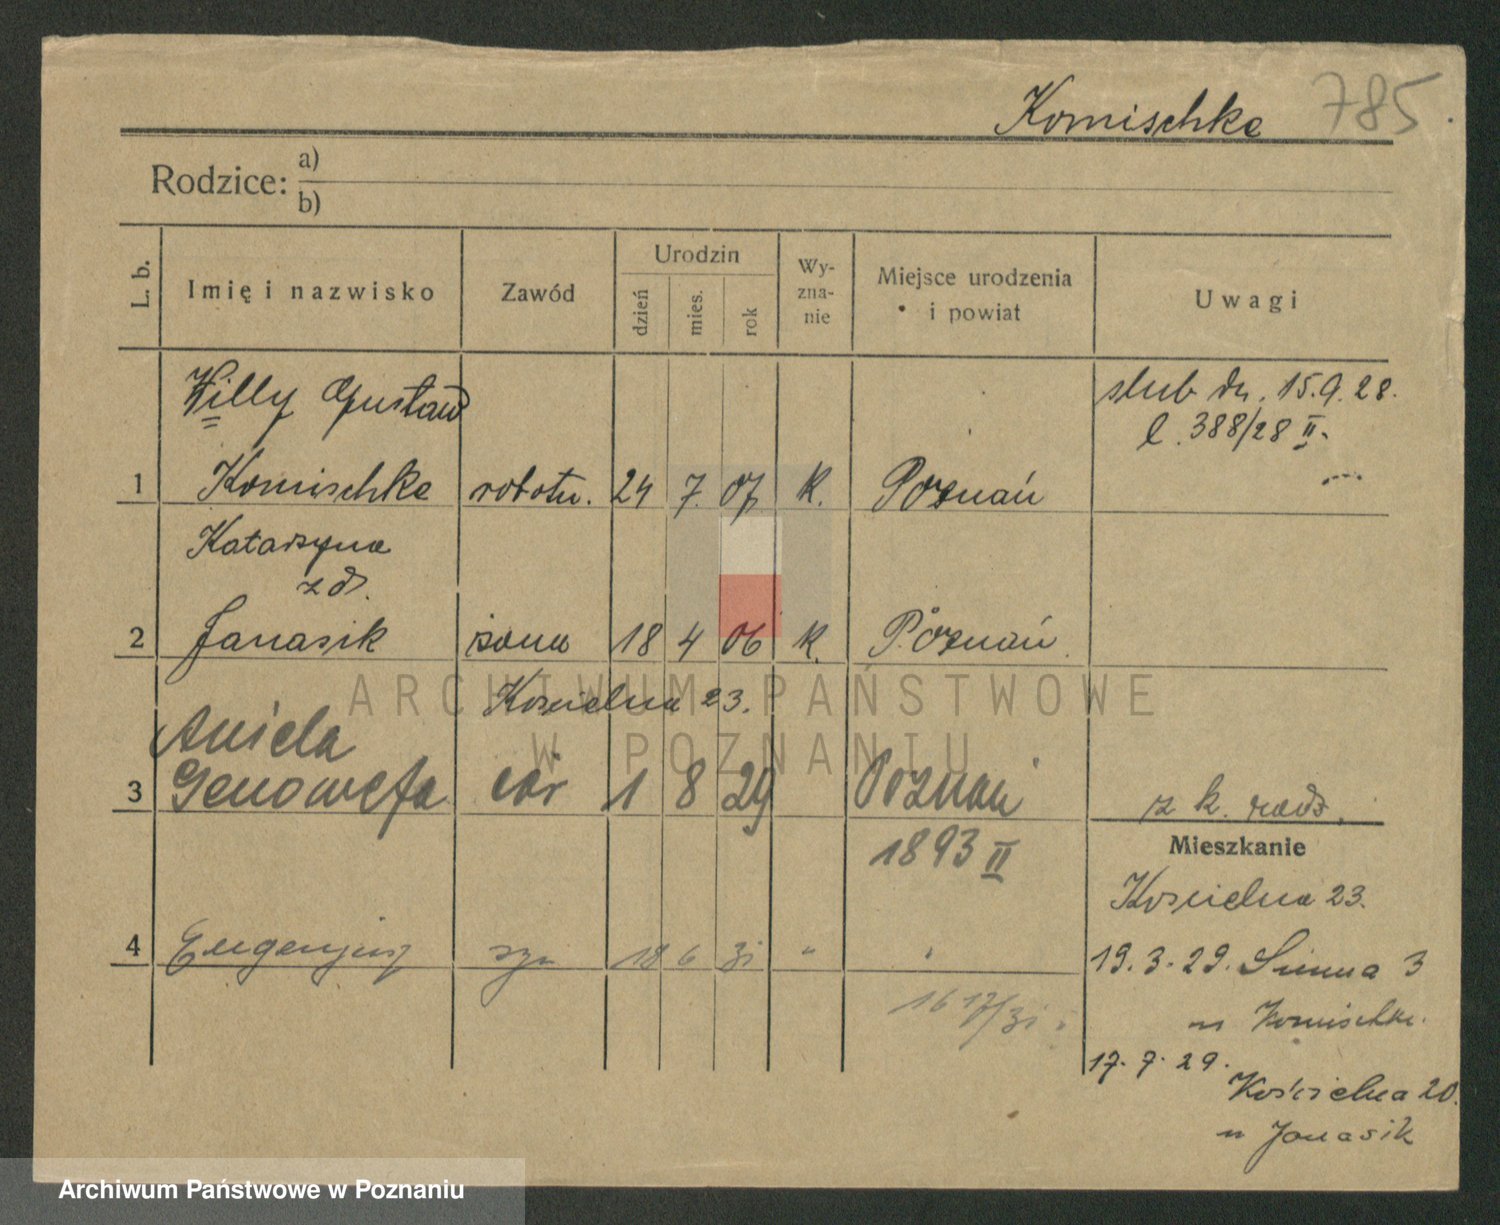 Komischke 785
Rodzice: a)
b)
L. b.
Imię i nazwisko
Zawód
Urodzin
dzień
mies.
rok
Wy-
zna-
nie
Miejsce urodzenia
i powiat
Uwagi
Willy Gustaw
ślub dn. 15.9.28.
l. 388/28 II.
1 Komischke robotn. 24 7. 07 k. Poznań
Katarzyna
z d.
2 Janasik żona 18 4 06 k. Poznań
Kościelna 23.
ARCHIWUM PAŃSTWOWE
W POZNANIU
Aniela
3 Genowefa cór 1 8 29 Poznań z k. rodz.
1893 II
Mieszkanie
Kościelna 23.
4 Eugenjusz syn 18 6 31 " "
19.3.29. Zimna 3
16 17/31
u Komischke.
17.7.29.
Kościelna 20.
u Janasik
Archiwum Państwowe w Poznaniu